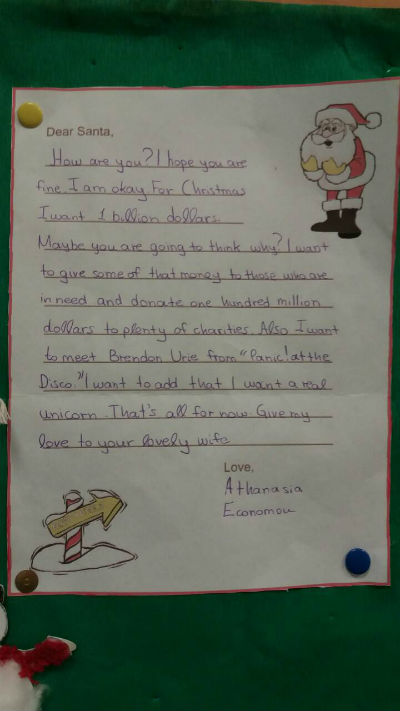 Dear Santa,
How are you? I hope you are
fine. I am okay. For Christmas
I want 1 billion dollars.
Maybe you are going to think why? I want
to give some of that money to those who are
in need and donate one hundred million
dollars to plenty of charities. Also I want
to meet Brendon Urie from "Panic! at the
Disco." I want to add that I want a real
unicorn. That's all for now. Give my
love to your lovely wife
Love,
Athanasia
Economou